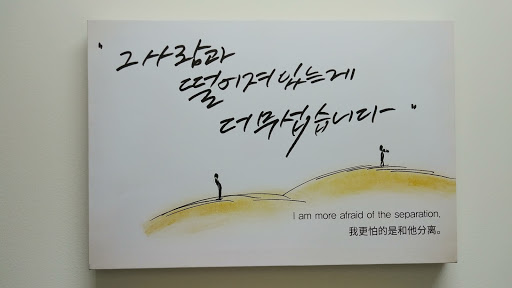 " 그 사람과
떨어져 있는게
더 무섭습니다 "
I am more afraid of the separation.
我更怕的是和他分离。